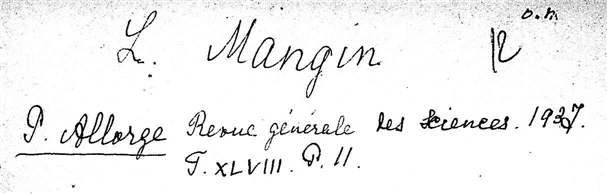 L. Mangin
P. Allorge Revue générale des Sciences. 1937.
T. XLVIII. P. 11.